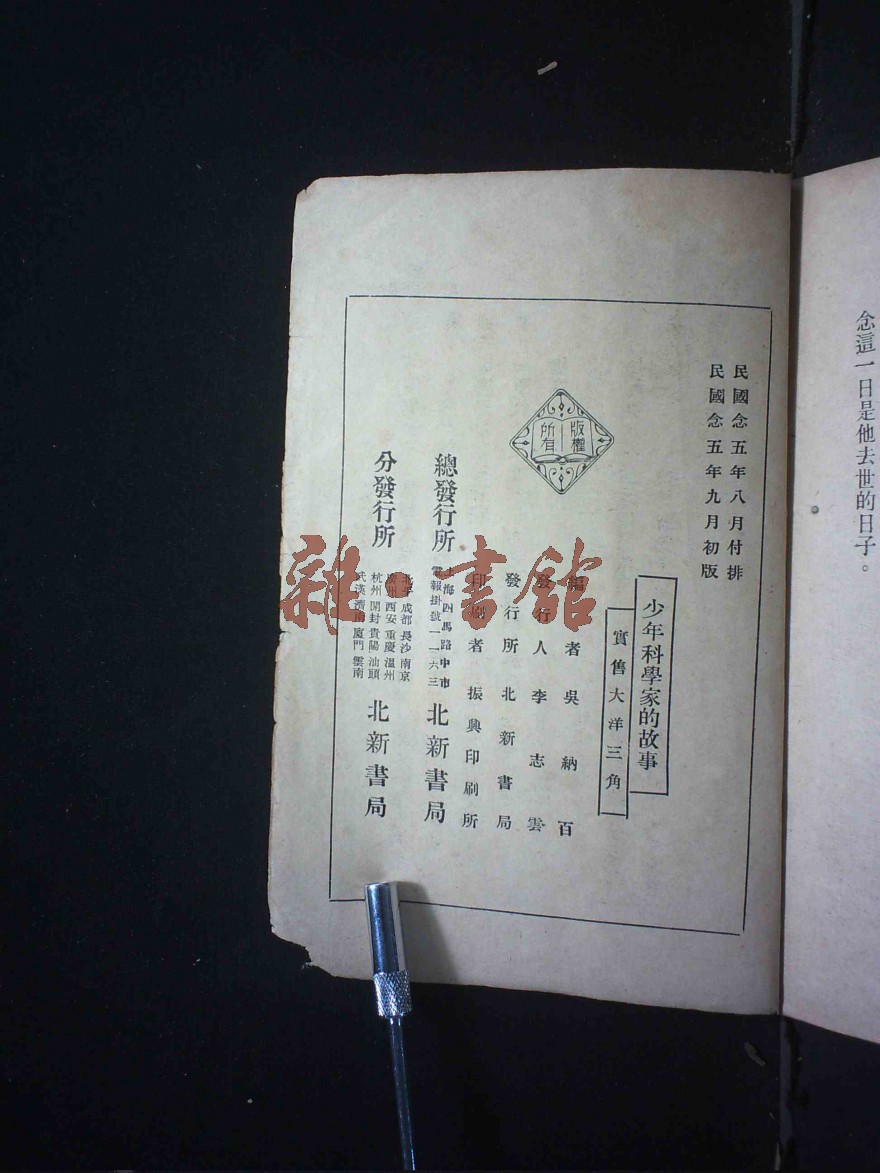 念這一日是他去世的日子。
民國念五年八月付排
民國念五年九月初版
版權所有
少年科學家的故事
實售大洋三角
編者吳納百
發行人李志雲
發行所北新書局
印刷者振興印刷所
總發行所
上海四馬路中市
電報掛號一一六三
北新書局
分發行所
北平成都長沙南京
廣州西安重慶溫州
杭州開封貴陽汕頭
武漢濟南廈門雲南
北新書局
雜·書館